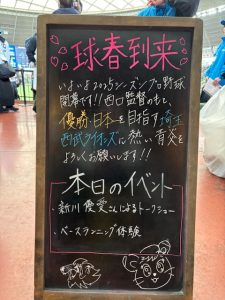 球春到来
いよいよ2025シーズンプロ野球
開幕です!!西口監督のもと、
優勝・日本一を目指す埼玉
西武ライオンズに熱い声援を
よろしくお願いします!!
本日のイベント
・新川優愛さんによるトークショー
・ベースランニング体験